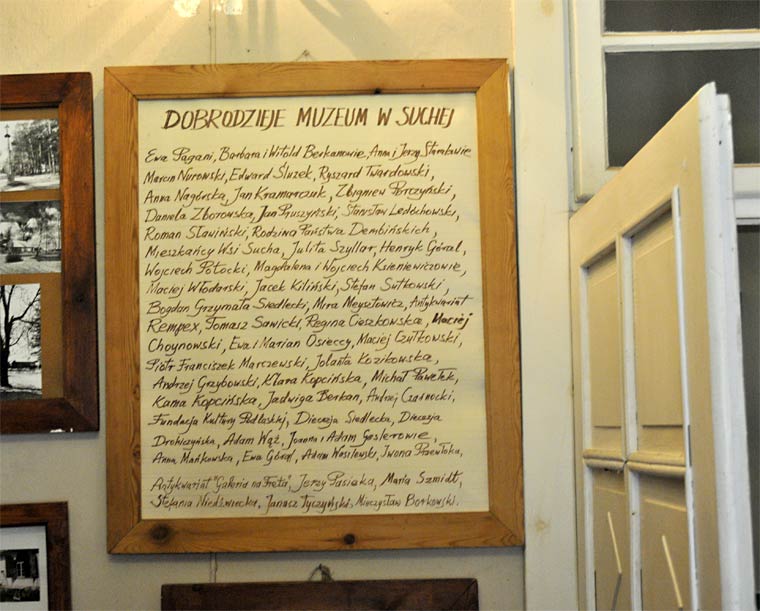 DOBRODZIEJE MUZEUM W SUCHEJ
Ewa Pagani, Barbara i Witold Berkanowie, Anna i Jerzy
Marcin Nurowski, Edward Służek, Ryszard Twardowski,
Anna Nagórska, Jan Kramarczuk, Zbigniew Porczyński,
Daniela Zborowska, Jan Pruszyński, Stanisław Ledóchowski,
Roman Sławiński, Rodzina Państwa Dembińskich,
Mieszkańcy Wsi Sucha, Julita Szyllar, Henryk Góral,
Wojciech Potocki, Magdalena i Wojciech Ksieniewiczowie,
Maciej Włodarski, Jacek Kiliński, Stefan Sutkowski,
Bogdan Grzymała Siedlecki, Mira Meysztowicz, Antykwariat
Rempex, Tomasz Sawicki, Regina Cieszkowska, Maciej
Choynowski, Ewa i Marian Osieccy, Maciej Czułkowski,
Piotr Franciszek Marczewski, Jolanta Kozikowska,
Andrzej Grzybowski, Klara Kopcińska, Michał Pawełek,
Kama Kopcińska, Jadwiga Berkan, Andrzej Czarnocki,
Fundacja Kultury Podlaskiej, Diecezja Siedlecka, Diecezja
Drohiczyńska, Adam Wąż, Joanna i Adam Gęslerowie,
Anna Mańkowska, Ewa Góral, Adam Wasilewski, Iwona Przewłoka,
Antykwariat "Galeria na Freta", Jerzy Pasieka, Maria Szmidt,
Stefania Niedźwiecka, Janusz Tyczyński, Mieczysław Borkowski.